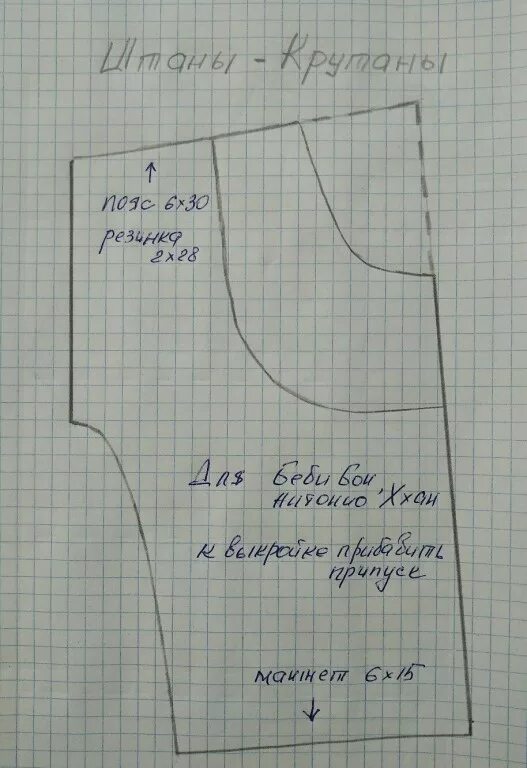 Штаны - Крутаны
пояс 6х30
резинка
2х28
Для Беби Бон,
Антонио Хуан
к выкройке прибавить
припуск
манжет 6х15